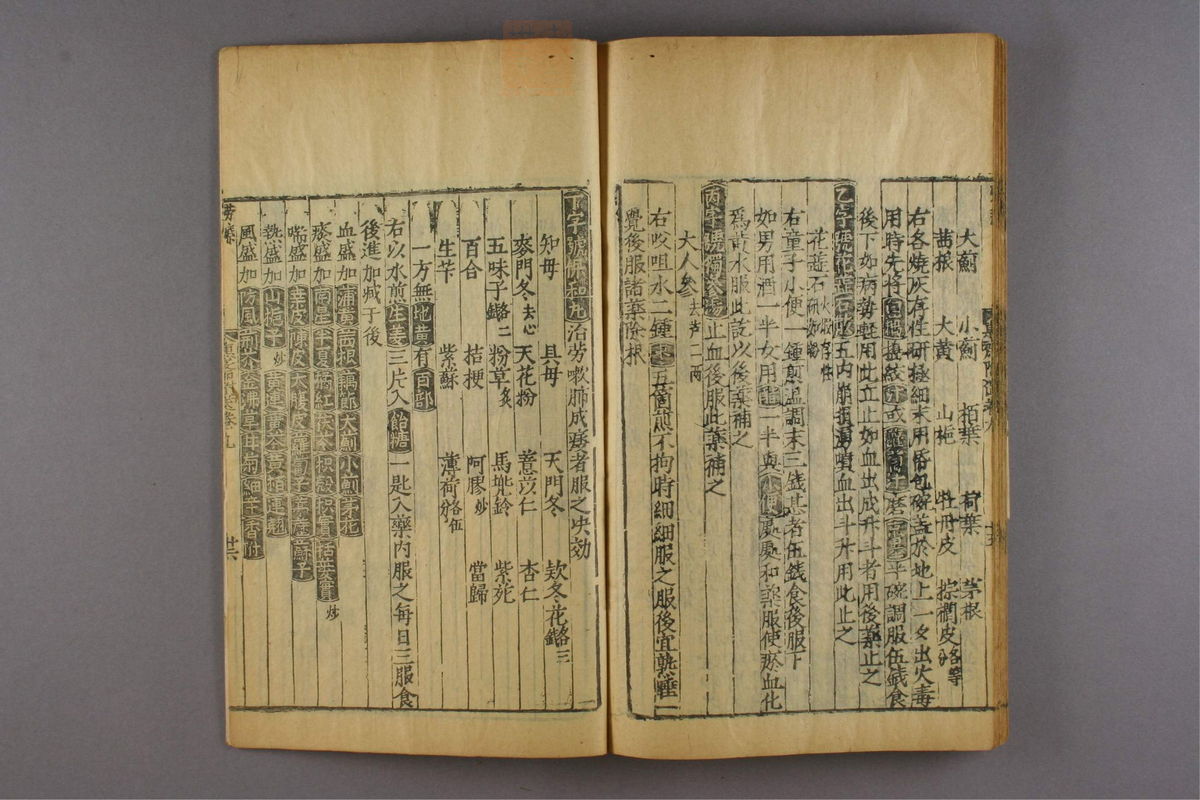 大薊 小薊 栢葉 荷葉 茅根
茜根 大黃 山梔 牡丹皮 棕櫚皮各等分
右各燒灰存性研極細末用昏包碗盖於地上一夂出火毒
用時先將白藕搗絞汁或蘿蔔汁磨京墨半碗調服伍錢食
後下如病勢輕用此立止如血出成升斗者用後藥止之
乙字號花蕋石散五内崩損湧噴血出斗升用此止之
花蕋石火煅存性研如粉
右童子小便一鍾煎溫調末三錢甚者伍錢食後服下
如男用酒一半女用醋一半與小便處處和藥服使瘀血化
爲黃水服此訖以後藥補之
丙字號獨參湯止血後服此藥補之
大人參去芦二兩
右㕮咀水二鍾棗五箇煎不拘時細細服之服後宜熟睡一
覺後服諸藥除根
丁字號保和丸治勞嗽肺成痿者服之决効
知母 貝母 天門冬 欵冬花各三錢
麥門冬去心 天花粉 薏苡仁 杏仁
五味子各二錢 粉草炙 馬兠鈴 紫苑
百合 桔梗 阿膠炒 當歸
生苄 紫蘇 薄荷各伍分
一方無地黃有百部
右以水煎生姜三片入飴糖一匙入藥内服之每日三服食
後進加㓕于後
血盛加蒲黃茜根藕節大薊小薊茅花
痰盛加南星半夏橘紅茯苓枳殻枳實括蔞實炒
喘盛加桑皮陳皮大腹皮蘿蔔子葶藶蘇子
熱盛加山梔子炒黃連黃芩黃柏連翹
風盛加防風荆芥金沸草甘菊細辛香附
勞瘵
卷九
廿六